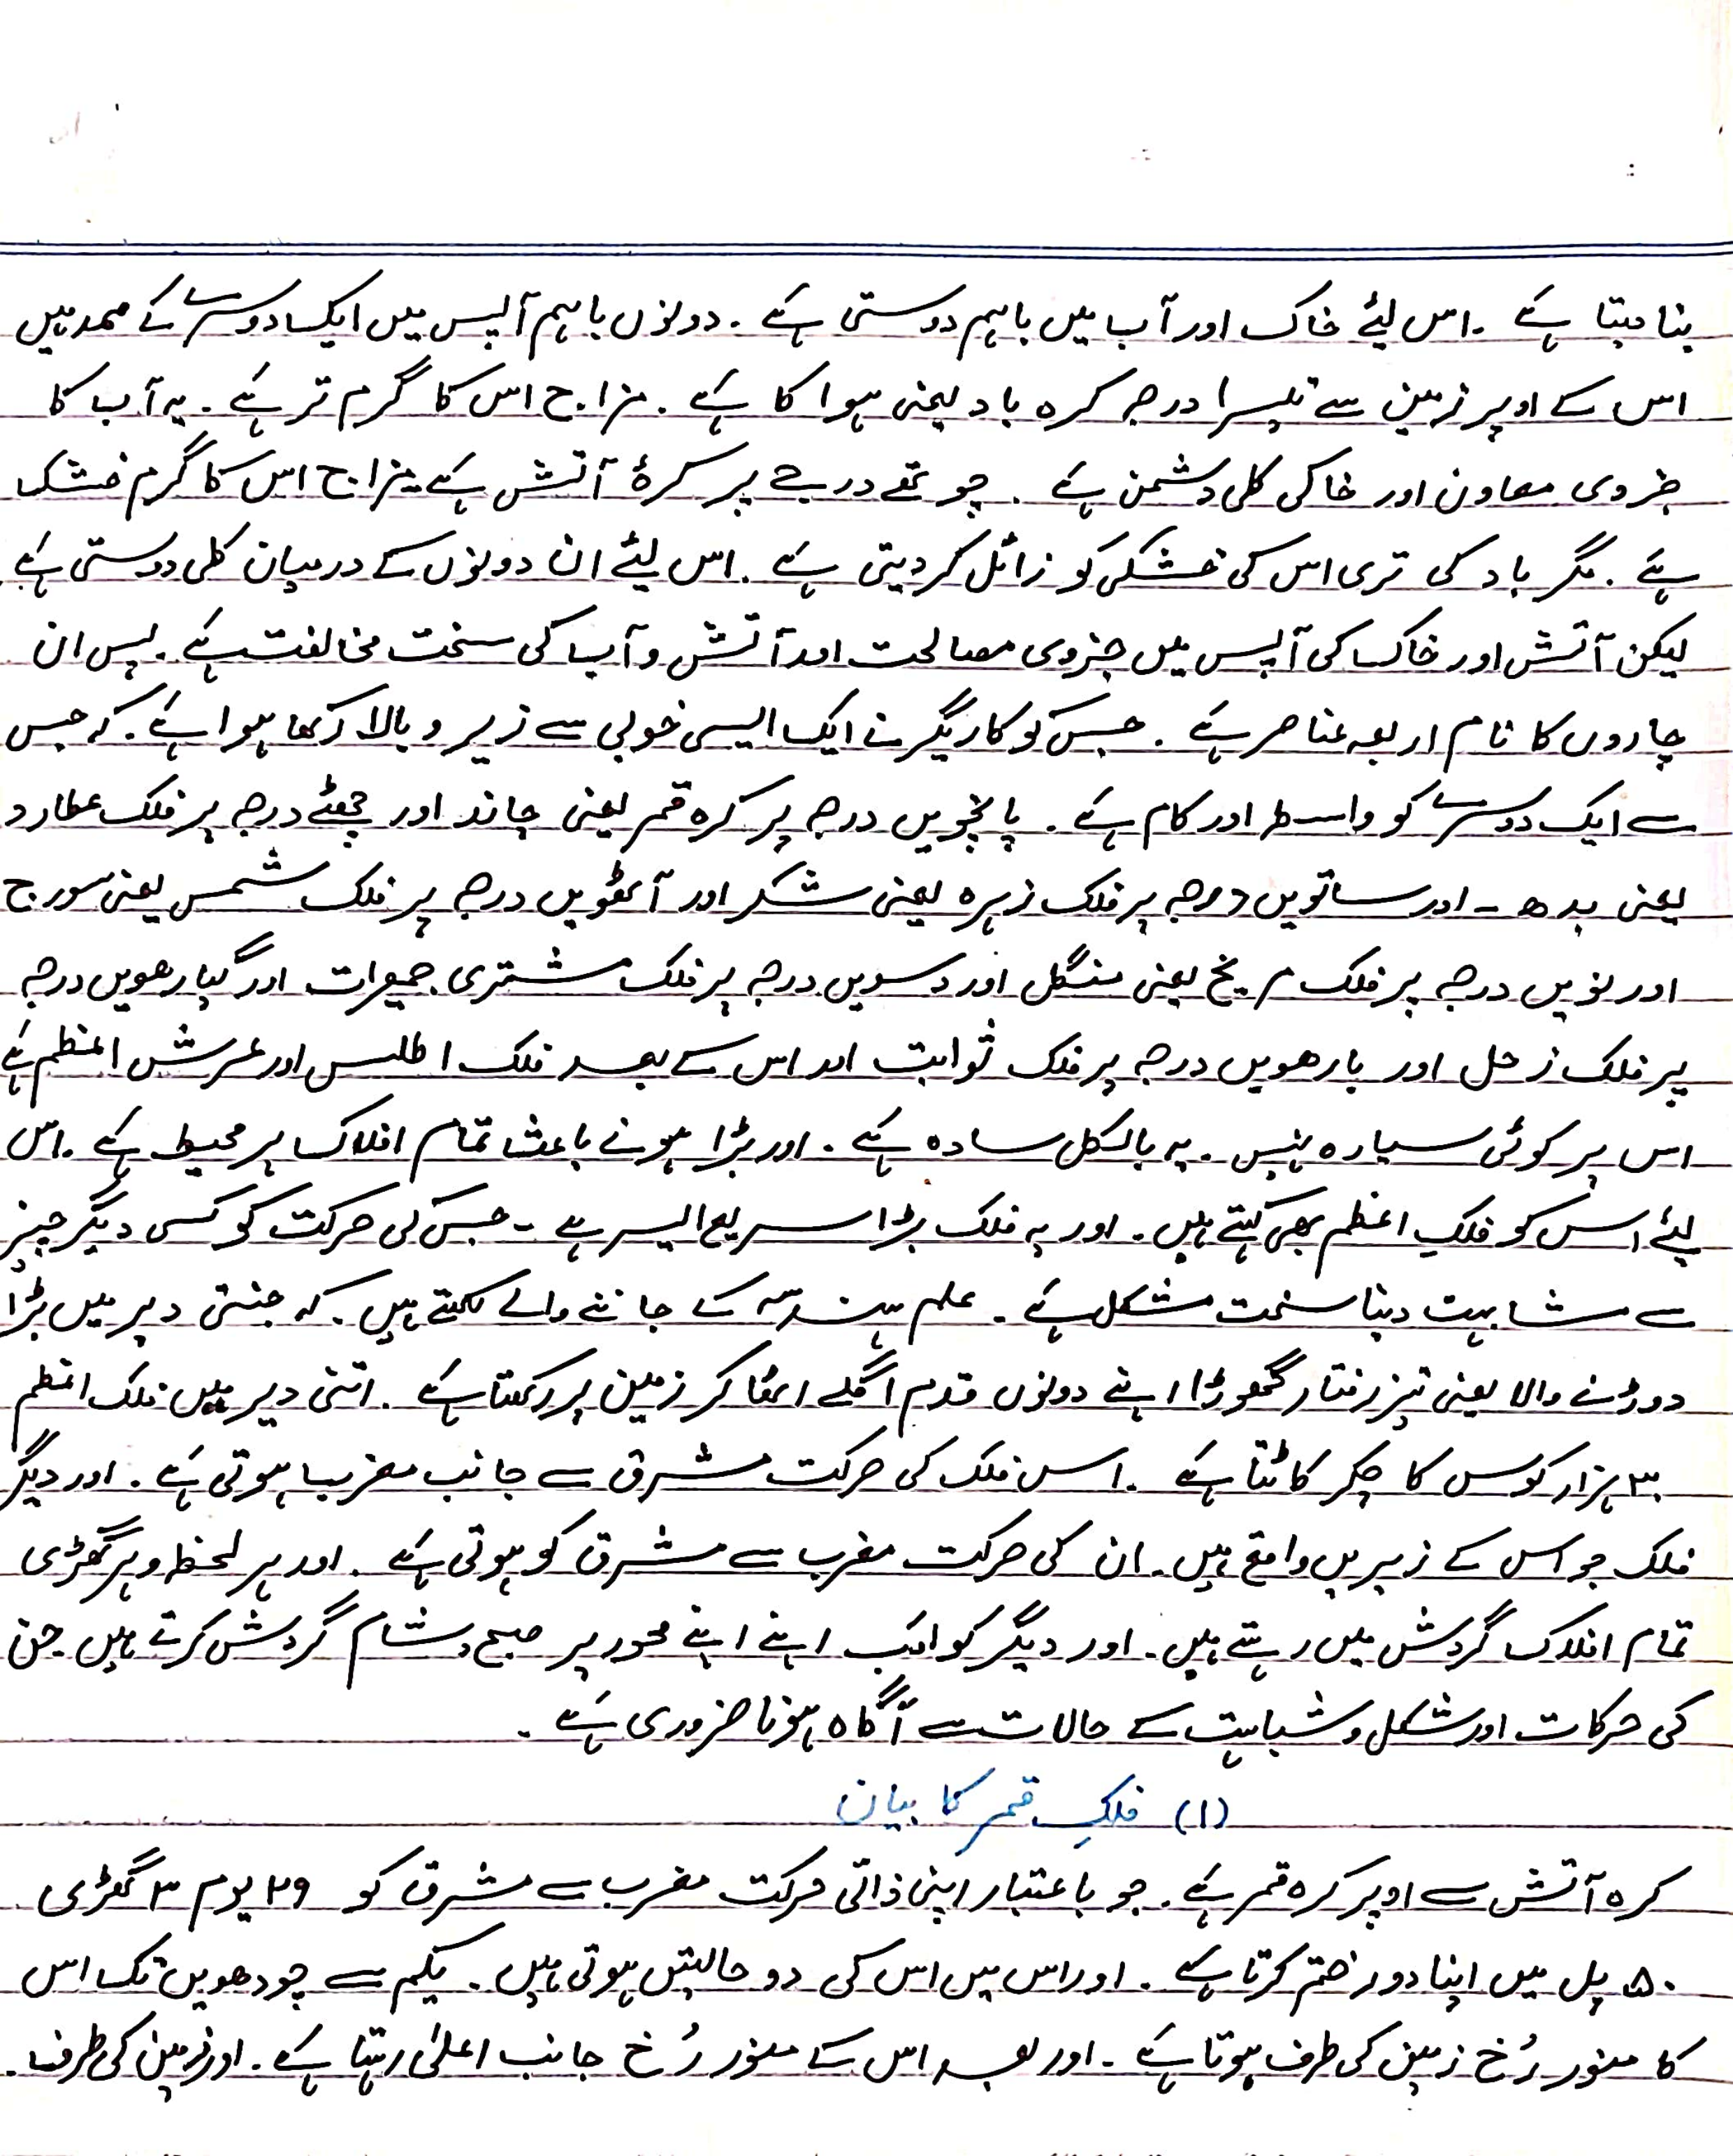 بنا دیتا ہے ۔ اس لیٔے خاک اور آب میں باہم دوستی ہے ۔ دونوں باہم آپس میں ایک دوسرے کے ممد ہیں
اس کے اوپر زمین سے تیسرا درجہ کرہ باد یعنی ہوا کا ہے ۔ مزاج اس کا گرم تر ہے ۔ یہ آب کا
جزوی معاون اور خاکی کلی دشمن ہے ۔ چوتھے درجے پر کرۂ آتش ہے مزاج اس کا گرم خشک
ہے ۔ مگر باد کی تری اس کی خشکی کو زائل کر دیتی ہے ۔ اس لیٔے ان دونوں کے درمیان کلی دوستی ہے
لیکن آتش اور خاک کی آپس میں جزوی مصالحت اور آتش و آب کی سخت مخالفت ہے ۔ پس ان
چاروں کا نام اربعہ عناصر ہے ۔ جس کو کاریگر نے ایک ایسی خوبی سے زیر و بالا رکھا ہوا ہے ۔ کہ جس
سے ایک دوسرے کو واسطہ اور کام ہے ۔ پانچویں درجہ پر کرہ قمر یعنی چاند اور چھٹے درجہ پر فلک عطارد
یعنی بدھ ۔ اور ساتویں درجہ پر فلک زہرہ یعنی شکر اور آٹھویں درجہ پر فلک شمس یعنی سورج
اور نویں درجہ پر فلک مریخ یعنی منگل اور دسویں درجہ پر فلک مشتری جمعرات اور گیارھویں درجہ
پر فلک زحل اور بارھویں درجہ پر فلک ثوابت اور اس کے بعد فلک اطلس اور عرش اعظم ہے
اس پر کوئی سیارہ نہیں ۔ یہ بالکل سادہ ہے ۔ اور بڑا ہونے باعث تمام افلاک پر محیط ہے ۔ اس
لیٔے اس کو فلکِ اعظم بھی کہتے ہیں ۔ اور یہ فلک بڑا سریع السیر ہے ۔ جس کی حرکت کو کسی دیگر چیز
سے مشابہت دینا سخت مشکل ہے ۔ علم ہندسہ کے جاننے والے لکھتے ہیں ۔ کہ جتنی دیر میں بڑا
دوڑنے والا یعنی تیز رفتار گھوڑا اپنے دونوں قدم اگلے اٹھا کر زمین پر رکھتا ہے ۔ اتنی دیر میں فلک اعظم
۳۰ ہزار کوس کا چکر کاٹتا ہے ۔ اس فلک کی حرکت مشرق سے جانب مغرب ہوتی ہے ۔ اور دیگر
فلک جو اس کے زیر میں واقع ہیں ۔ ان کی حرکت مغرب سے مشرق کو ہوتی ہے ۔ اور ہر لحظہ و ہر گھڑی
تمام افلاک گردش میں رہتے ہیں ۔ اور دیگر کواکب اپنے اپنے محور پر صبح و شام گردش کرتے ہیں جن
کی حرکات اور شکل و شباہت کے حالات سے آگاہ ہونا ضروری ہے ۔
(۱) فلکِ قمر کا بیان
کرہ آتش سے اوپر کرہ قمر ہے ۔ جو باعتبار اپنی ذاتی حرکت مغرب سے مشرق کو ۲۹ یوم ۳ گھڑی
۵۰ پل میں اپنا دور ختم کرتا ہے ۔ اور اس میں اس کی دو حالتیں ہوتی ہیں ۔ یکم سے چودھویں تک اس
کا منور رُخ زمین کی طرف ہوتا ہے ۔ اور بعد اس کے منور رُخ جانب اعلیٰ رہتا ہے ۔ اور زمین کی طرف